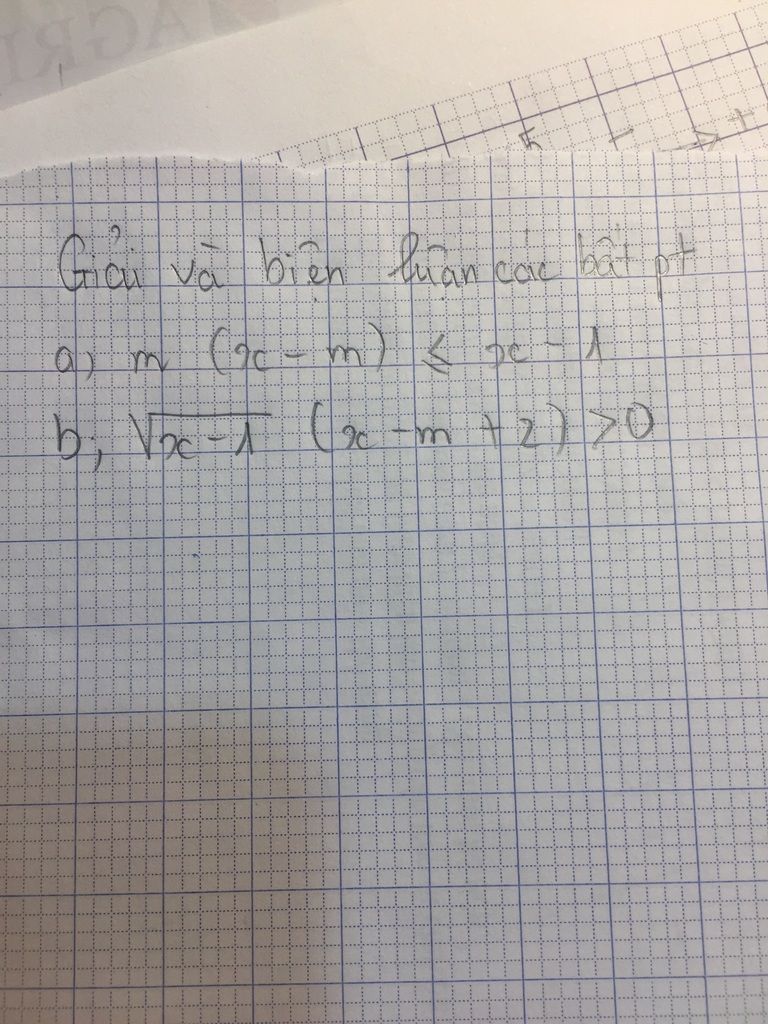 Giải và biện luận các bất pt
a) m (x - m) ≤ x - 1
b, √x-1 (x - m + 2) > 0